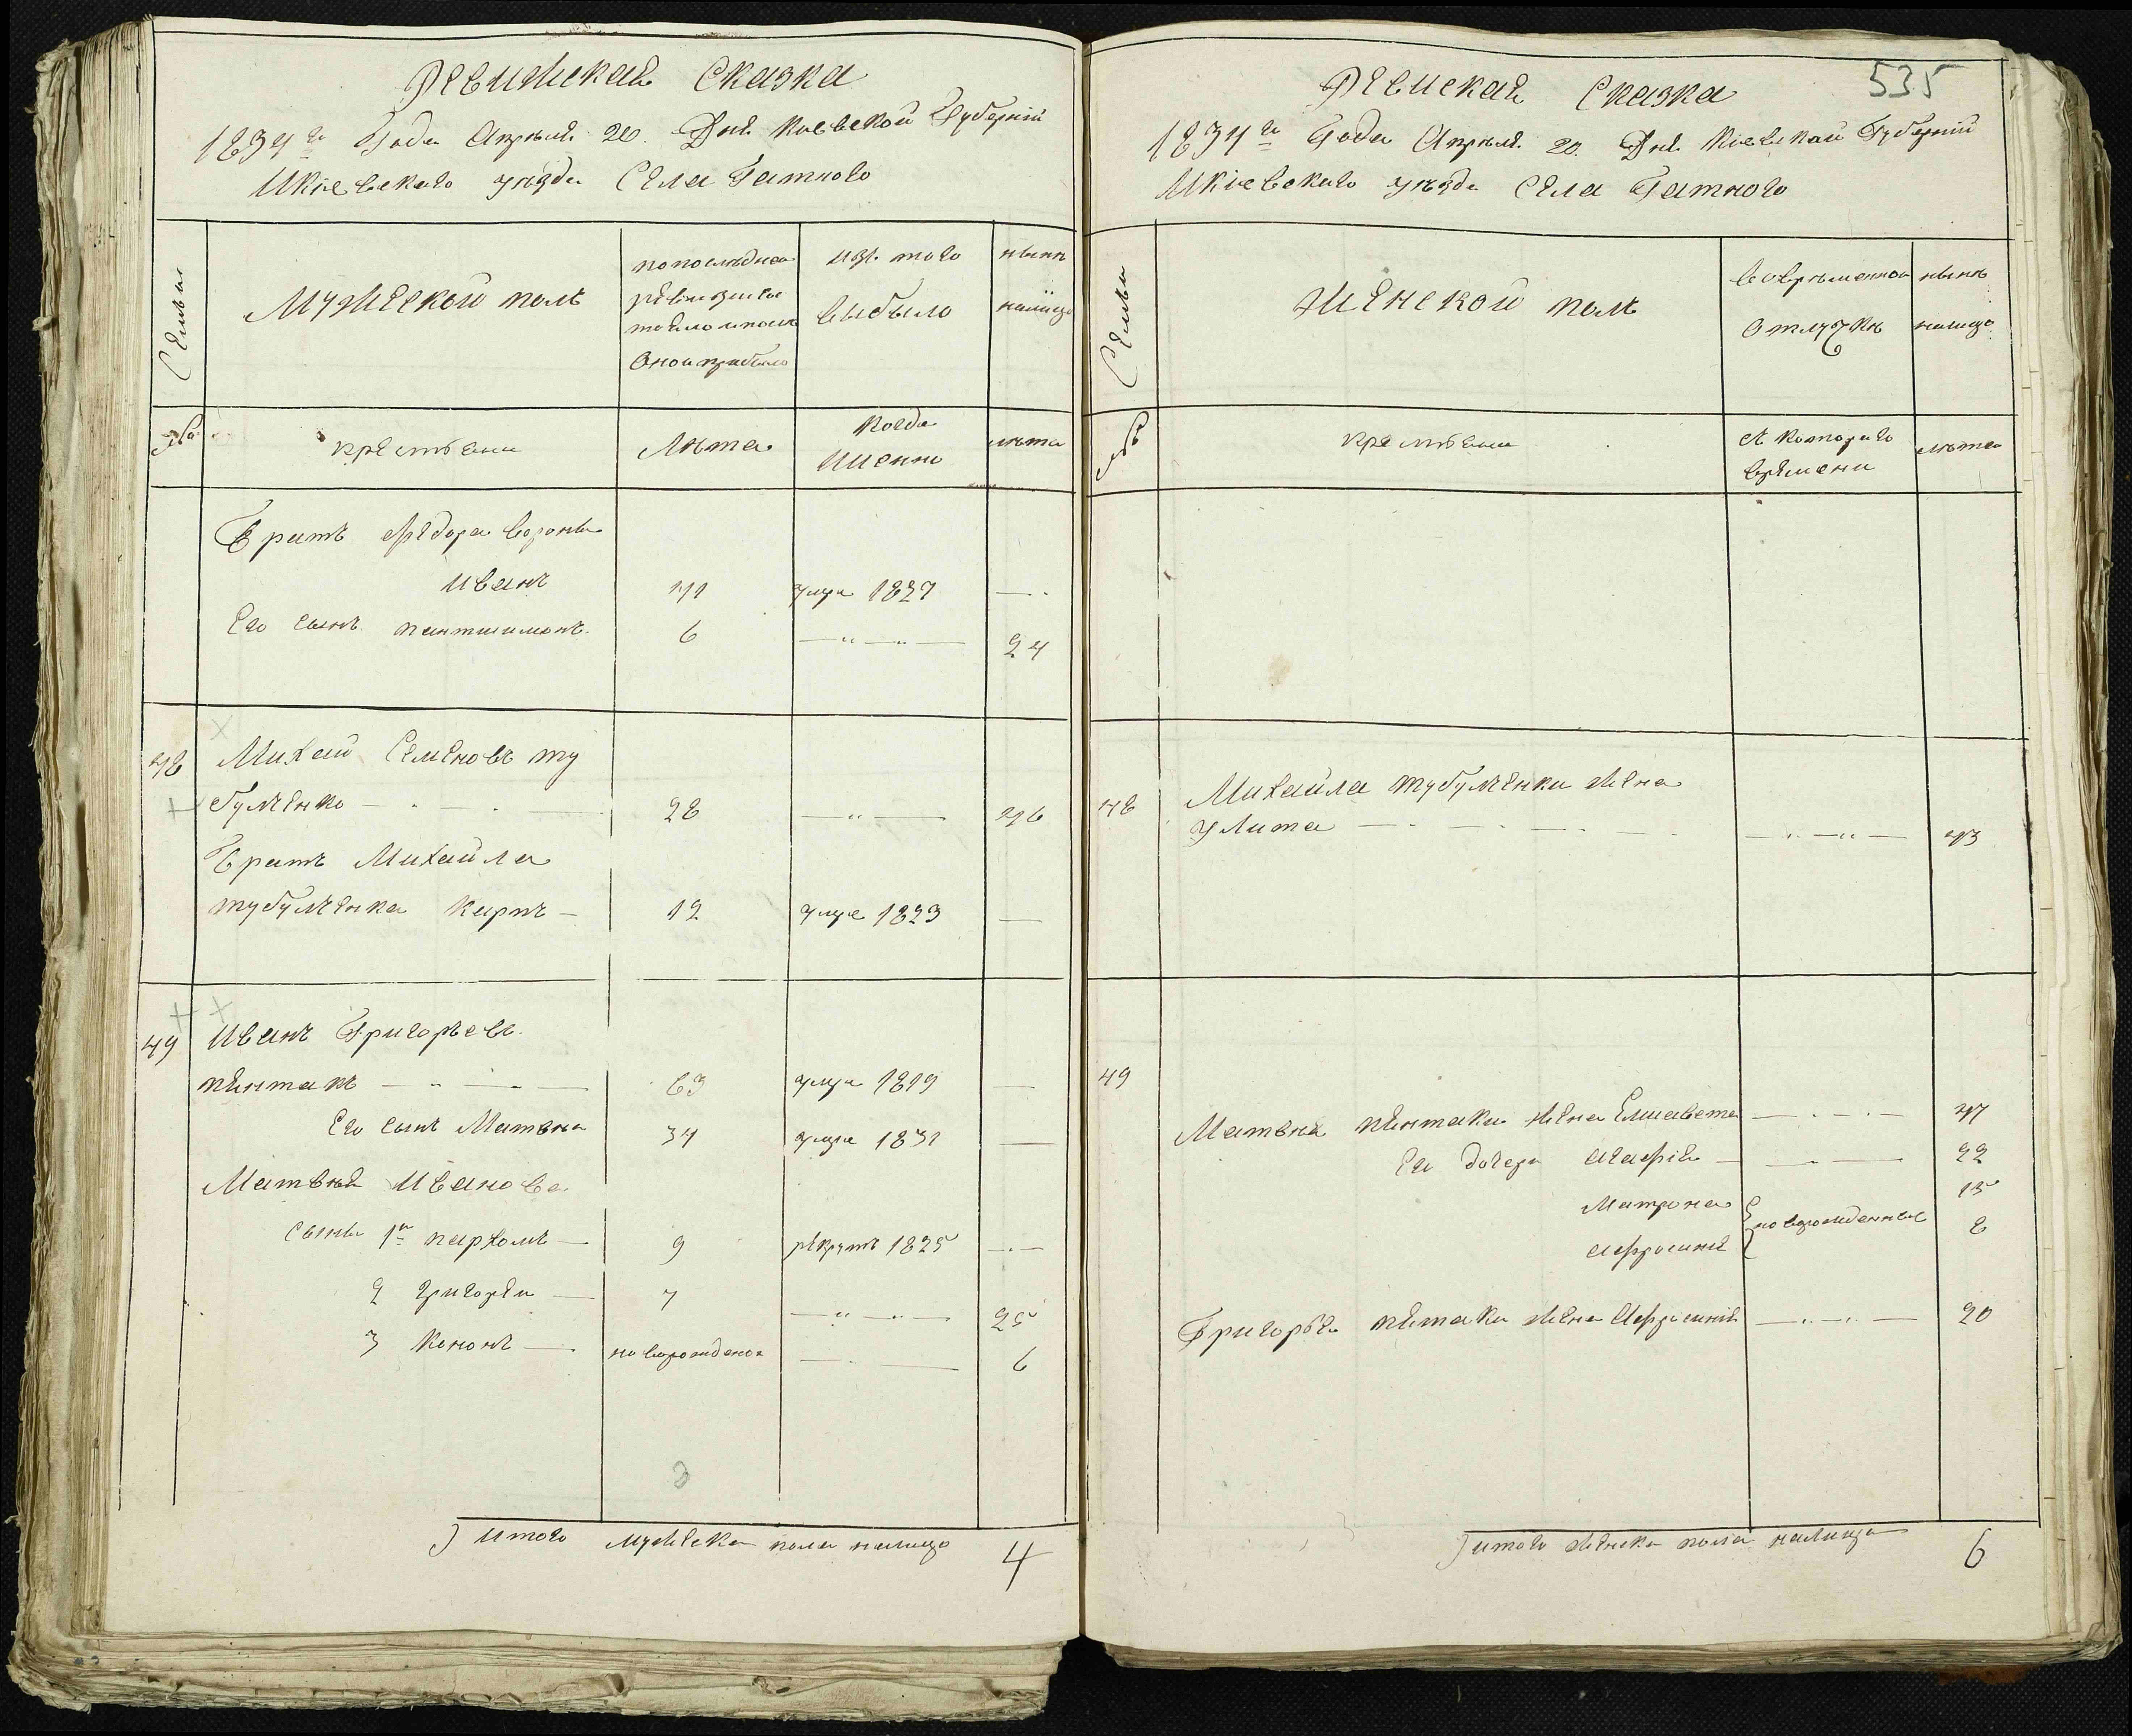 Ревижская Сказка
1834го Года Апреля 20. Дня Киевской Губернии
И Киевского уезда Села Гатного
Семьи
Мужеской полъ
по последней
ревизии со
стояло и после
оной прибыло
изъ того
выбыло
ныне
налицо
№
крестьяне
Лета
когда
именно
лета
Братъ Федора вороны
иванъ 41 умре 1827 —
Его сынъ пантилимонъ 6 — 24
48 Михаил Семеновъ ту
булченко — 28 — 46
Братъ Михайла
тубулченка карпъ — 12 умре 1823 —
49 иванъ Григорьевъ
пентакъ — 63 умре 1819 —
Его сынъ Матвей 34 умре 1831 —
Матвея Иванова
сыны 1й пархомъ — 9 рекрутъ 1825 —
2 григорей — 7 — 25
3 кононъ — новорожденой — 6
3
Итого мужеска пола налицо 4
535
Ревиская Сказка
1834го Года Апреля 20 Дня Киевской Губернии
И Киевского уезда Села Гатного
Семьи
Женской полъ
во временной
отлучке
ныне
налицо
№
крестьяне
съ которого
времени
лета
48 Михайла тубулченка жена
улита — 43
49
Матвея пентака жена Елисавета — 47
Его дочери агафия — 22
Матрона новорожденные 15
афросиния 8
Григорья пентака жена Афросиния — 20
итого женска пола налицо 6